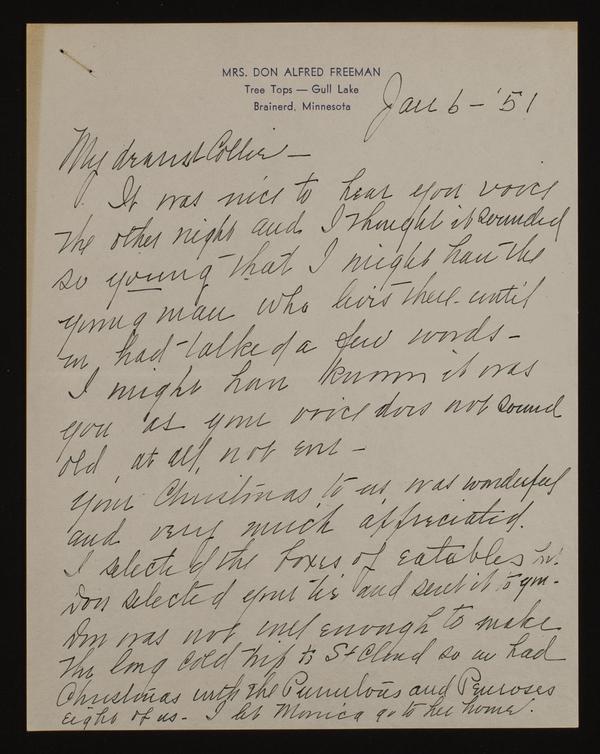 MRS. DON ALFRED FREEMAN
Tree Tops — Gull Lake
Brainerd, Minnesota
Jan 6 - '51
My dearest Collie —
It was nice to hear you voice
the other night and I thought it sounded
so young that I might have the
young man who lives there - until
we had talked a few words -
I might have known it was
you as your voice does not sound
old, at all, not ever -
Your Christmas to us, was wonderful
and very much appreciated.
I selected the boxes of eatables but
Don selected your tie and sent it to you -
Don was not well enough to make
the long cold trip to St Cloud so we had
Christmas with the and Penroses
eight of us - I let Monica go to her home.